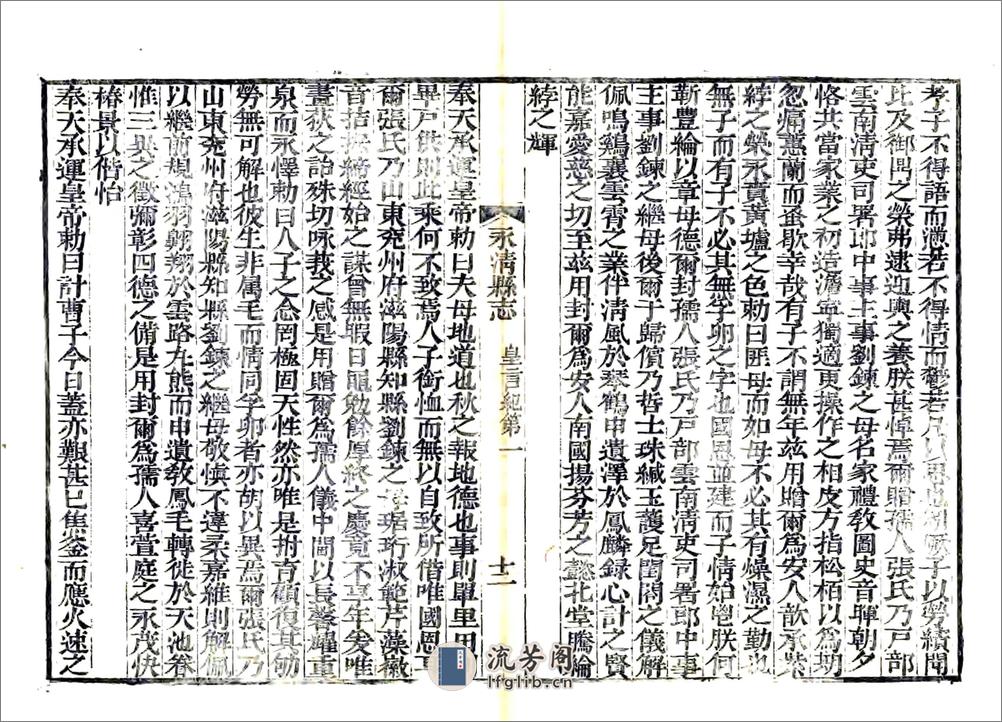 孝子不得語而懣若不得情而鬱若凡以思也初厥子以勞績聞
比及御門之榮弗逮迎輿之養朕甚悼焉爾贈孺人張氏乃戸部
雲南淸吏司署郎中事主事劉鍊之母名家禮敎圖史音聯朝夕
恪共當家業之初造澹寧獨適更操作之相皮方指松柏以為期
忽痛蕙蘭而蚤歇幸哉有子不謂無年兹用贈爾為安人歆承紫
綍之榮永賁黃壚之色勅曰匪母而如母不必其有燥濕之勤也
無子而有子不必其無孚卵之字也國恩並建而子情如鬯朕何
靳豐綸以章母德爾封孺人張氏乃戸部雲南淸吏司署郎中事
主事劉鍊之繼母後爾于歸儐乃哲士珠緘玉護足閨閤之儀解
佩鳴鷄襄雲霄之業伴淸風於琴鶴申遺澤於鳳麟録心計之賢
能嘉愛慈之切至兹用封爾為安人南國揚芬芳之懿北堂騰綸
綍之輝
永淸縣志
皇言紀第一
十二
奉天承運皇帝勅曰夫母地道也秋之報地德也事則單里
畢戸供則此乘何不致焉人子銜恤而無以自致所偕唯國恩
爾張氏乃山東兖州府滋陽縣知縣劉鍊之母琚珩淑範芹藻徽
音拮据締經始之謀曾無暇日黽勉餘厚終之慶竟不享年爰唯
晝荻之詒殊切咏莪之感是用贈爾為孺人儀中閫以長馨耀重
泉而永懌勅曰人子之念罔極固天性然亦唯是拊育顧復其劬
勞無可解也彼生非属毛而情同孚卵者亦胡以異焉爾張氏乃
山東兖州府滋陽縣知縣劉鍊之繼母敬愼不違柔嘉維則解佩
以繼前規鴻羽翺翔於雲路丸熊而申遺敎鳳毛轉徙於天池眷
惟三異之徵彌彰四德之備是用封爾為孺人喜萱庭之永茂快
椿景以偕怡
奉天承運皇帝勅曰計曹子今日蓋亦艱甚已焦釜而應火速之
流芳阁
lfglib.cn